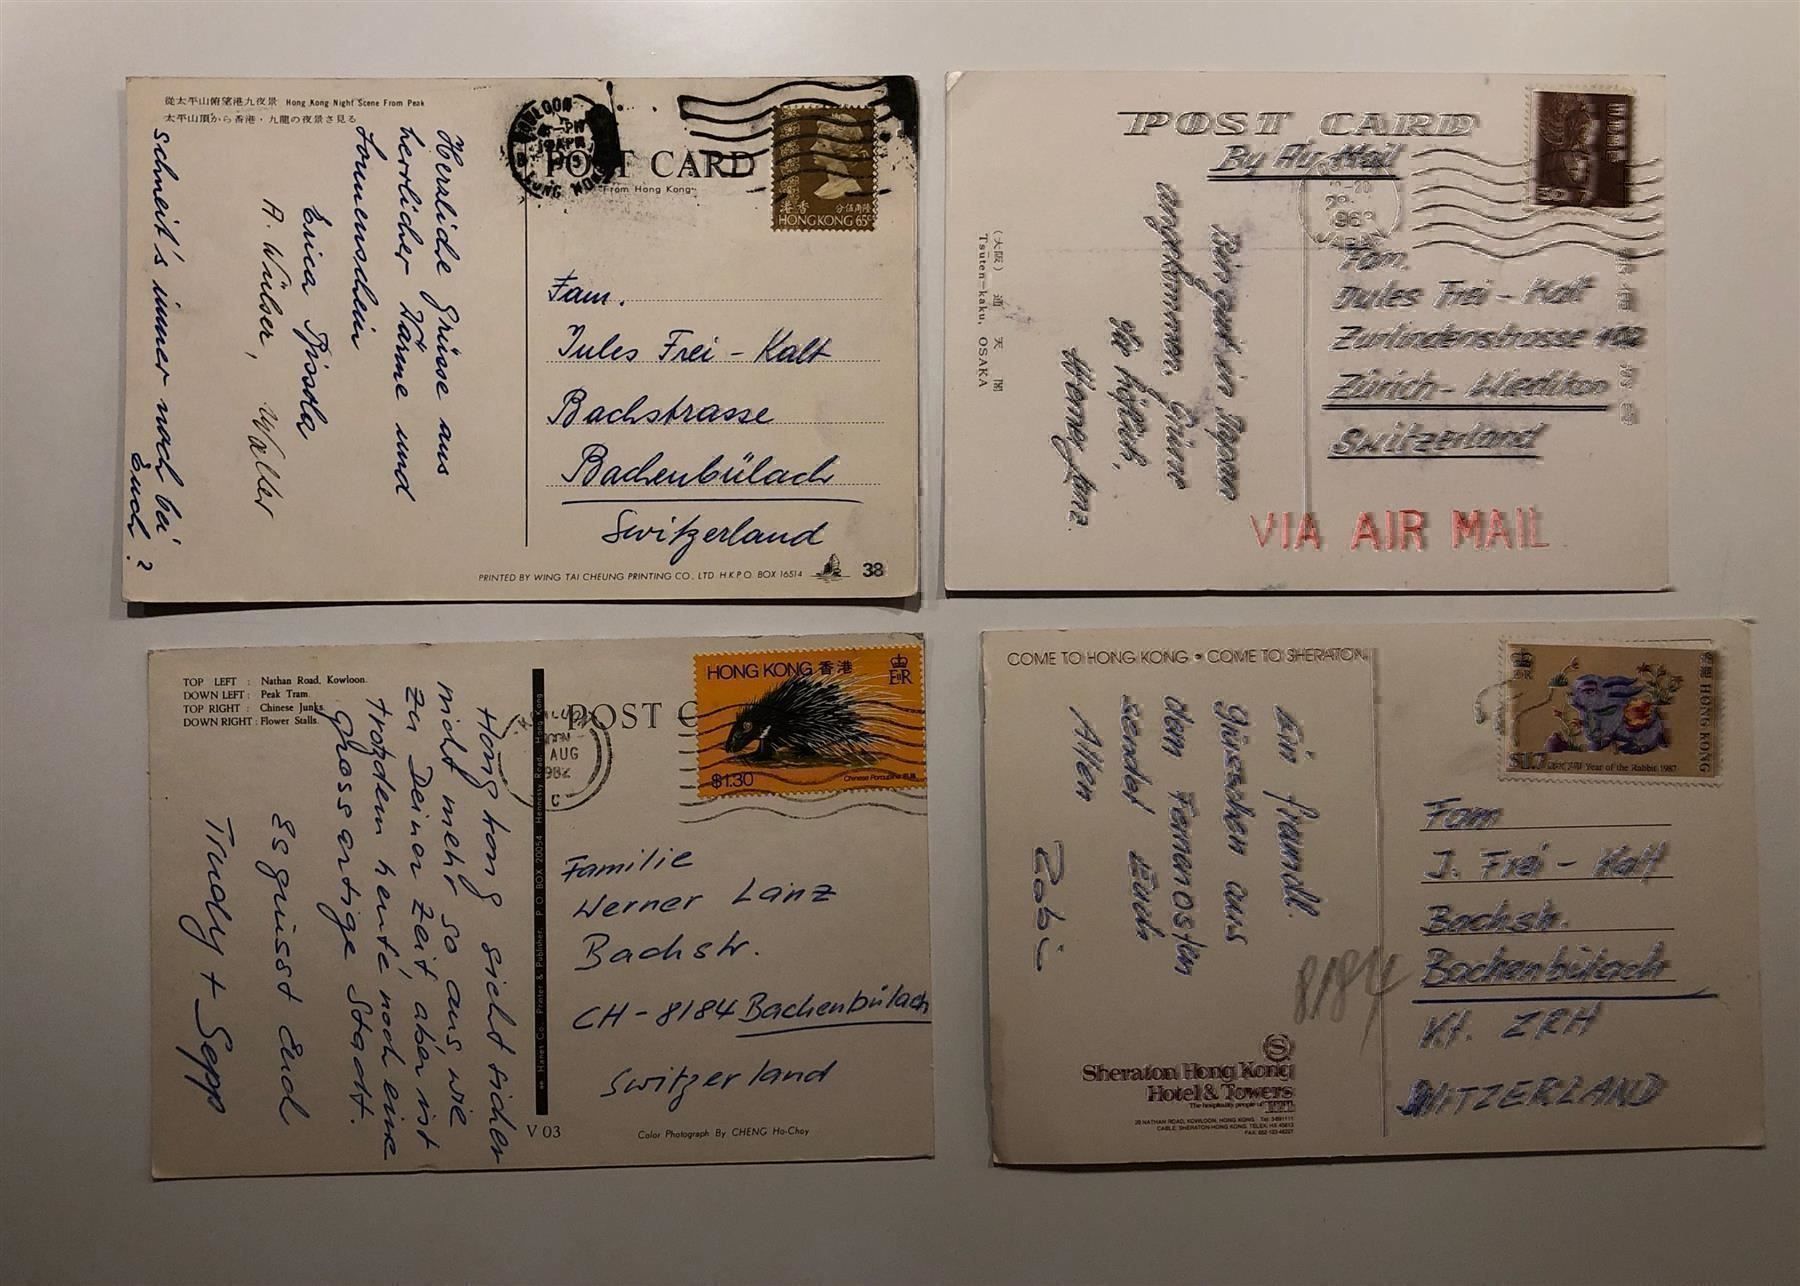 從太平山俯望港九夜景 Hong Kong Night Scene From Peak
太平山頂から香港・九龍の夜景さ見る
POST CARD
From Hong Kong
香港
HONG KONG 65¢
Herzliche Grüsse aus
herrlicher Wärme und
Sonnenschein
Erica
A. Wülser, Walter
schneit's immer noch bei
Euch?
Fam.
Jules Frei - Kalt
Bachstrasse
Bachenbülach
Switzerland
PRINTED BY WING TAI CHEUNG PRINTING CO., LTD H.K.P.O. BOX 16514
38
POST CARD
By Air Mail
(大阪) 通天閣
Tsuten-kaku, OSAKA
Bin gut in Japan
angekommen. Grüsse
Werner Lanz.
Fam.
Jules Frei - Kalt
Zurlindenstrasse 102
Zürich - Wiedikon
Switzerland
VIA AIR MAIL
TOP LEFT : Nathan Road, Kowloon.
DOWN LEFT : Peak Tram.
TOP RIGHT : Chinese Junks.
DOWN RIGHT : Flower Stalls.
POST C
HONG KONG 香港
$1.30
Chinese Porcupine
AUG
1982
Hong Kong sieht sicher
nicht mehr so aus wie
zu Deiner Zeit, aber ist
trotzdem heute noch eine
grossartige Stadt.
Es grüsst Euch
Trudy + Sepp
Hanes Co., Printer & Publisher, P.O. BOX 20054 Hennessy Road, Hong Kong
Familie
Werner Lanz
Bachstr.
CH - 8184 Bachenbülach
Switzerland
V 03
Color Photograph By CHENG Ho-Choy
COME TO HONG KONG • COME TO SHERATON.
香港 HONG KONG
$1.7
Year of the Rabbit 1987
Ein freundl.
Grüsschen aus
dem Fernen Osten
sendet Euch
Allen
Robi
8184
Fam
J. Frei - Kalt
Bachstr.
Bachenbülach
Kt. ZRH
SWITZERLAND
Sheraton Hong Kong
Hotel & Towers
The hospitality people of ITT
20 NATHAN ROAD, KOWLOON, HONG KONG